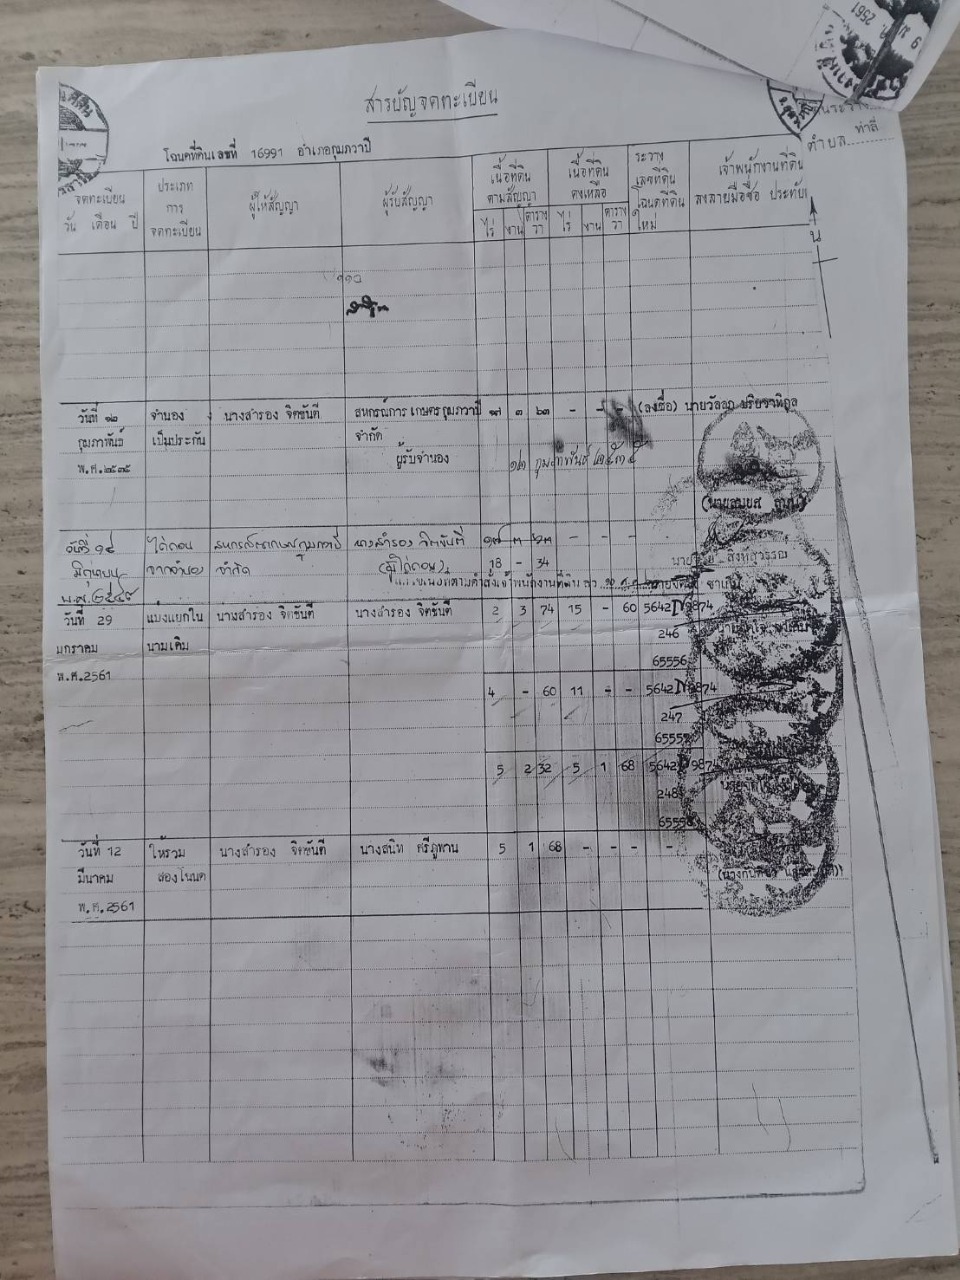 สารบัญจดทะเบียน
โฉนดที่ดินเลขที่ 16991 อำเภอกุมภวาปี
ตำบล ท่าลี่
จดทะเบียน วัน เดือน ปี
ประเภทการจดทะเบียน
ผู้ให้สัญญา
ผู้รับสัญญา
เนื้อที่ดินตามสัญญา
ไร่ งาน ตารางวา
เนื้อที่ดินคงเหลือ
ไร่ งาน ตารางวา
ระวาง เลขที่ดิน โฉนดที่ดินใหม่
เจ้าพนักงานที่ดิน ลงลายมือชื่อ ประทับ
วันที่ ๑๒ จำนอง นางสำรอง จิตขันตี สหกรณ์การเกษตรกุมภวาปี ๑๗ ๓ ๖๓ - - - (ลงชื่อ)
กุมภาพันธ์ เป็นประกัน จำกัด
พ.ศ.๒๕๓๕ ผู้รับจำนอง ๑๒ กุมภาพันธ์ ๒๕๓๕
วันที่ ๑๔ ไถ่ถอน สหกรณ์การเกษตรกุมภวาปี นางสำรอง จิตขันตี ๑๗ ๓ ๖๓ - - -
มิถุนายน จากจำนอง จำกัด (ผู้ไถ่ถอน) 18 - 34
วันที่ 29 แบ่งแยกใน นางสำรอง จิตขันตี นางสำรอง จิตขันตี 2 3 74 15 - 60 5642 IV 9874
มกราคม นามเดิม 246
พ.ศ.2561 65556
4 - 60 11 - - 5642 IV 9874
247
5 2 32 5 1 68 5642 IV 9874
248
วันที่ 12 ให้รวม นางสำรอง จิตขันตี นางสนิท ศรีภูทาน 5 1 68 - - - -
มีนาคม สองโฉนด
พ.ศ.2561